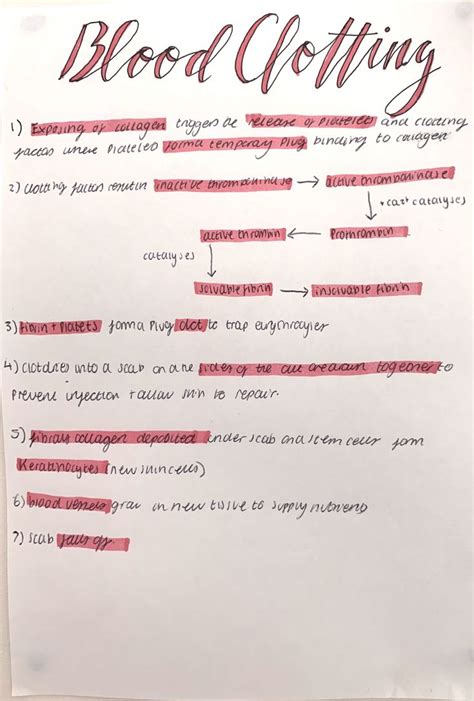 Blood Clotting
1) Exposing of collagen triggers the release of platelets and clotting
factors where plateles forma temporary plug binding to collagen
2) clotting factors result in inactive thromboninase → active thromboninase
+ca2+ catalyses
active thrombin ← Prothrombin
catalyses
soluable fibrin → insoluable fibrin
3) fibrin + platlets form a plug clot to trap eurythrocytes
4) clot dries into a scab and the sides of the cut are drawn together to
prevent injection + allow skin to repair.
5) fibrous collagen deposited under scab and stem cells form
Keratinocytes (new skin cells)
6) blood vessels grow in new tissue to supply nutrients
7) scab falls off.